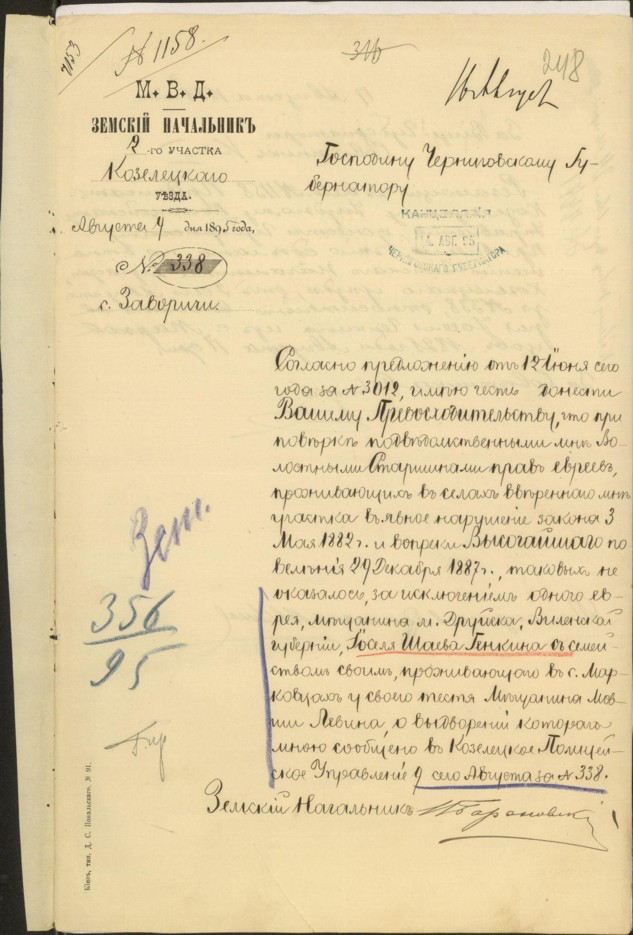 1153
№ 1158.
316
248
М. В. Д.
ЗЕМСКІЙ НАЧАЛЬНИКЪ
2-го УЧАСТКА
Козелецкаго
УѢЗДА.
Августа 9 дня 1895 года,
№ 338
с. Заворичи.
Господину Черниговскому Гу-
бернатору
КАНЦЕЛЯРІЯ
11. АВГ. 95
ЧЕРНИГОВСКАГО ГУБЕРНАТОРА
Согласно предложенію отъ 12 Іюня сего
года за № 3012, имѣю честь донести
Вашему Превосходительству, что при
повѣркѣ подвѣдомственными мнѣ Во-
лостными Старшинами правъ евреевъ,
проживающихъ въ селахъ ввѣреннаго мнѣ
участка въ явное нарушеніе закона 3
Мая 1882 г. и вопреки Высочайшаго по-
велѣнія 29 Декабря 1887 г., таковыхъ не
оказалось, за исключеніемъ одного ев-
рея, мѣщанина м. Друйска, Виленской
губерніи, Іоселя Шаева Генкина съ семей-
ствомъ своимъ, проживающаго въ с. Мар-
ковцахъ у своего тестя мѣщанина Мов-
ши Левина, о выдвореніи котораго
мною сообщено въ Козелецкое Полицей-
ское Управленіе 9 сего Августа за № 338.
Земскій Начальникъ
356
95
Кіевъ, тип. Д. С. Повальскаго. № 91.